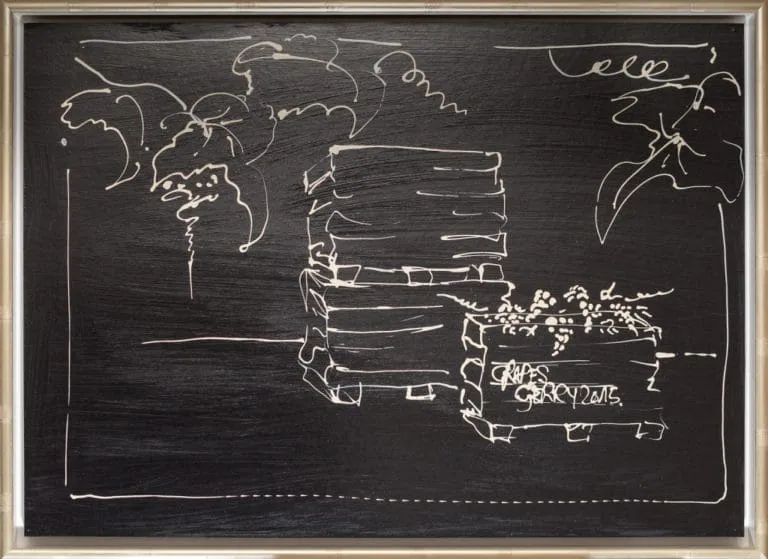 GRAPES
GERRY 2015.